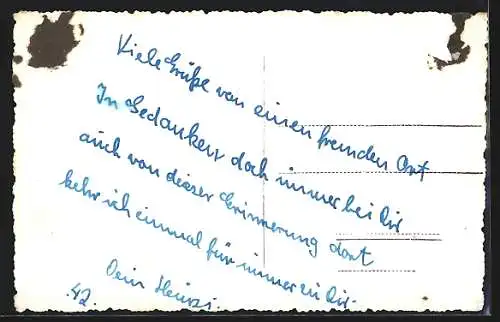 Viele Grüße von einem fremden Ort
In Gedanken doch immer bei Dir
auch von dieser Erinnerung dort
kehr ich einmal für immer zu Dir.
Dein Heinzi
.42.